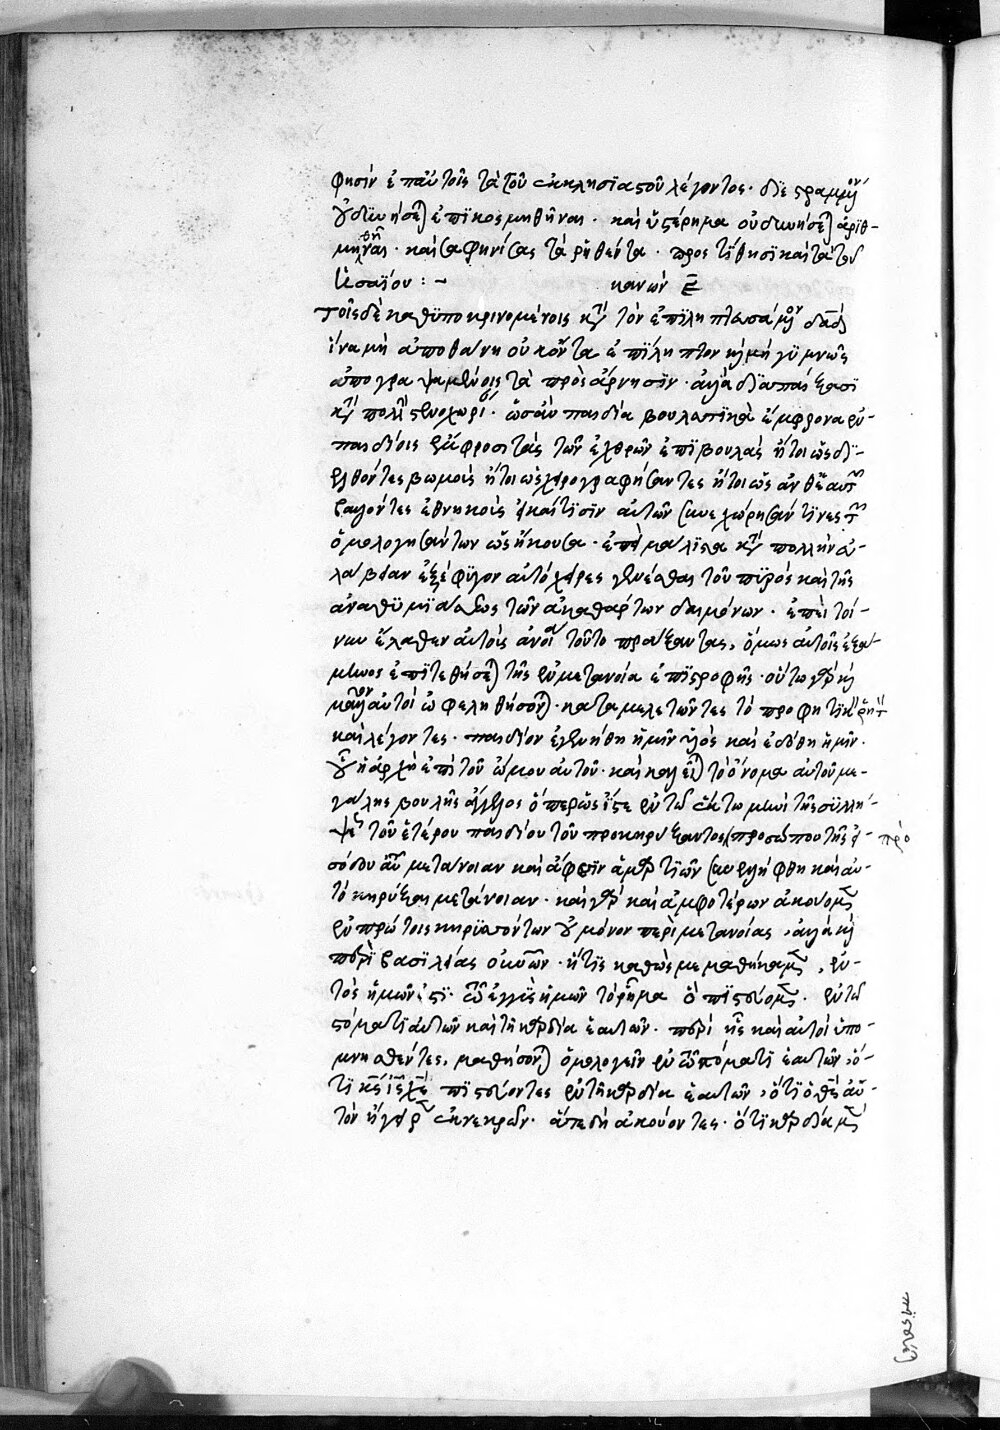 φησίν ἐπαὐτοῖς τὰ τοῦ ἐκκλησιαστοῦ λέγοντος· διεστραμμένον
οὐ δυνήσεται ἐπικοσμηθῆναι· καὶ ὑστέρημα οὐ δυνήσεται ἀριθ-
μηθῆναι· καὶ σαφηνίσας τὰ ῥηθέντα· προστίθησι καὶ τὰ τοῦ
ἡσαΐου :~ κανών ε
Τοῖς δὲ καθϋποκρινομένοις κατὰ τὸν ἐπιληπτευσάμενον δαδ
ἵνα μὴ ἀποθάνη οὐκ ὄντα ἐπίληπτον κ μὴ γυμνῶς
ἀπογραψαμένοις τὰ πρὸς ἄρνησιν· ἀλλὰ διαπαίξασι
κατὰ πολλὴν στενοχωρίαν· ὡσὰν παιδία βουλευτικὰ ἔμφρονα ἐν
παιδίοις ἄφροσι τὰς τῶν ἐχθρῶν ἐπιβουλὰς ἤτοι ὡς δι-
ελθόντες βωμοὺς ἤτοι ὡς χειρογραφήσαντες ἤτοι ὡς ἀνθἑαυτῶν
βαλόντες ἐθνικοὺς εἰ καί τισιν αὐτῶν συνεχώρησάν τινες τῶν
ὁμολογησάντων ὡς ἤκουσα· ἐπεὶ μάλιστα κατὰ πολλὴν εὐ-
λάβειαν ἐξέφυγον αὐτόχειρες γενέσθαι τοῦ πυρὸς καὶ τῆς
ἀναθϋμιάσεως τῶν ἀκαθάρτων δαιμόνων· ἐπεὶ τοί-
νυν ἔλαθεν αὐτοὺς ἀνοίᾳ τοῦτο πράξαντας, ὅμως αὐτοῖς ἑξά-
μηνος ἐπιτεθήσεται τῆς ἐν μετανοία ἐπιστροφῆς· οὕτω γὰρ κ
μᾶλλον αὐτοὶ ὠφεληθήσονται· καταμελετῶντες τὸ προφητικὸν ῥητὸν
καὶ λέγοντες· παιδίον ἐγεννήθη ἡμῖν υἱὸς καὶ ἐδόθη ἡμῖν·
οὗ ἡ ἀρχὴ ἐπὶ τοῦ ὤμου αὐτοῦ· καὶ καλεῖται τὸ ὄνομα αὐτοῦ με-
γάλης βουλῆς ἄγγελος ὅπερ ὡς ἴστε ἐν τῶ ἕκτω μηνὶ τῆς συλλή-
ψεως τοῦ ἑτέρου παιδίου τοῦ προκηρύξαντος προσώπου τῆς εἰ- πρὸ
σόδου αὐτοῦ μετάνοιαν καὶ ἄφεσιν ἁμαρτιῶν συνελήφθη καὶ αὐ-
τὸ κηρύξαι μετάνοιαν· καὶ γὰρ καὶ ἀμφοτέρων ἀκούομεν
ἐν πρώτοις κηρυσσόντων οὐ μόνον περὶ μετανοίας, ἀλλὰ κ
περὶ βασιλείας οὐρανῶν· ἥτις καθὼς μεμαθήκαμεν, ἐν-
τὸς ἡμῶν ἐστί· τῶ ἐγγὺς ἡμῶν τὸ ῥῆμα ὃ πιστεύομεν· ἐν τῶ
στόματι αὐτῶν καὶ τῆ καρδία ἑαυτῶν· περὶ ἧς καὶ αὐτοὶ ὑπο-
μνησθέντες, μαθήσονται ὁμολογεῖν ἐν τῶ στόματι ἑαυτῶν, ὅ-
τι κς ις χς πιστεύοντες ἐν τῆ καρδία ἑαυτῶν, ὅτι ὁ θς αὐ-
τὸν ἤγειρεν ἐκ νεκρῶν· ἅτε δὴ ἀκούοντες· ὅτι καρδία μὲν